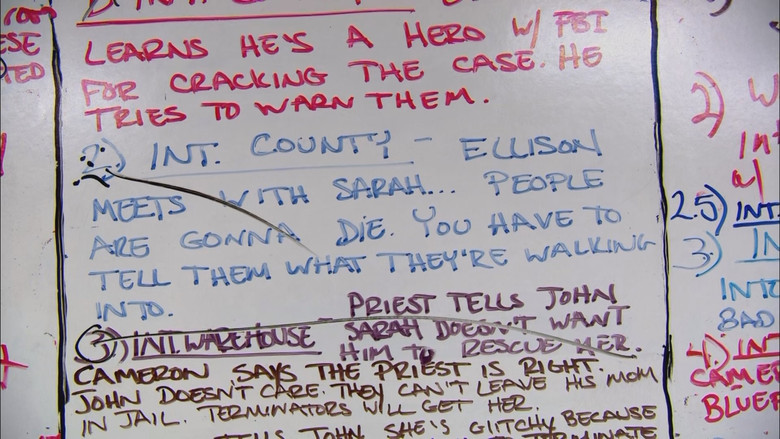 LEARNS HE'S A HERO W/ FBI
FOR CRACKING THE CASE. HE
TRIES TO WARN THEM.
2) INT. COUNTY - ELLISON
MEETS WITH SARAH... PEOPLE
ARE GONNA DIE. YOU HAVE TO
TELL THEM WHAT THEY'RE WALKING
INTO.
3) INT. WAREHOUSE - PRIEST TELLS JOHN
SARAH DOESN'T WANT
HIM TO RESCUE HER.
CAMERON SAYS THE PRIEST IS RIGHT.
JOHN DOESN'T CARE. THEY CAN'T LEAVE HIS MOM
IN JAIL. TERMINATORS WILL GET HER.
TELLS JOHN SHE'S GLITCHY BECAUSE
TERMINATE
TED
2)
W/
2.5) INT
3) IN
INTO
BAD
4) INT
CAMER
BLUEP